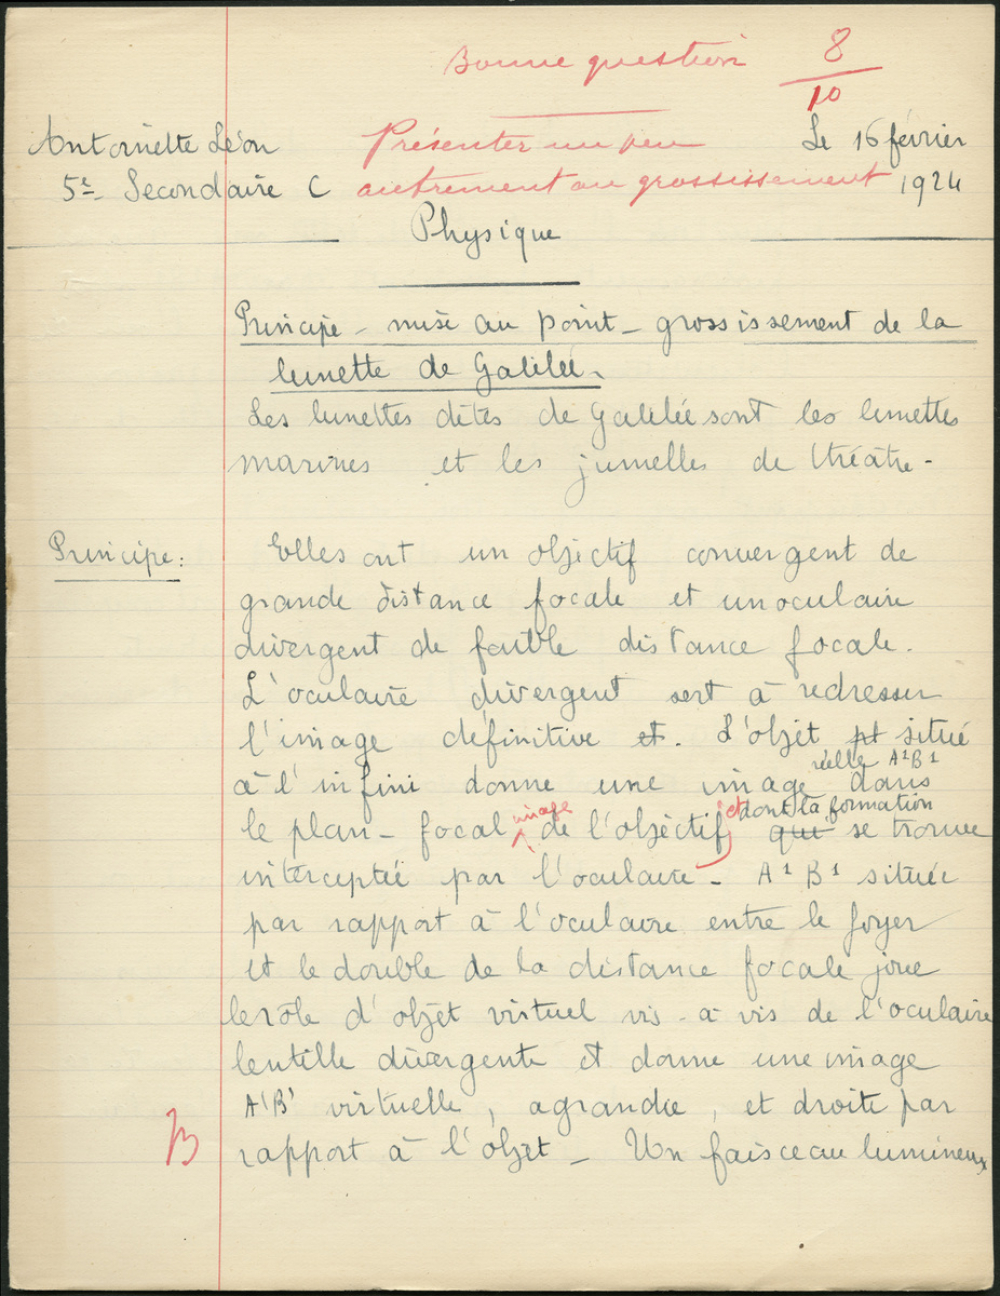 Bonne question 8/10
Antoinette Léon Présenter un peu Le 16 février
5e Secondaire C autrement au grossissement 1924
Physique
Principe - mise au point - grossissement de la
lunette de Galilée.
Les lunettes dites de Galilée sont les lunettes
marines et les jumelles de théâtre -
Principe: Elles ont un objectif convergent de
grande distance focale et un oculaire
divergent de faible distance focale.
L'oculaire divergent sert à redresser
l'image définitive et. L'objet pt situé
réelle A1B1
à l'infini donne une image dans
image et dont la formation
le plan-focal de l'objectif qui se trouve
interceptée par l'oculaire - A1 B1 située
par rapport à l'oculaire entre le foyer
et le double de la distance focale joue
le rôle d'objet virtuel vis-à-vis de l'oculaire
lentille divergente et donne une image
A'B' virtuelle, agrandie, et droite par
B rapport à l'objet - Un faisceau lumineux